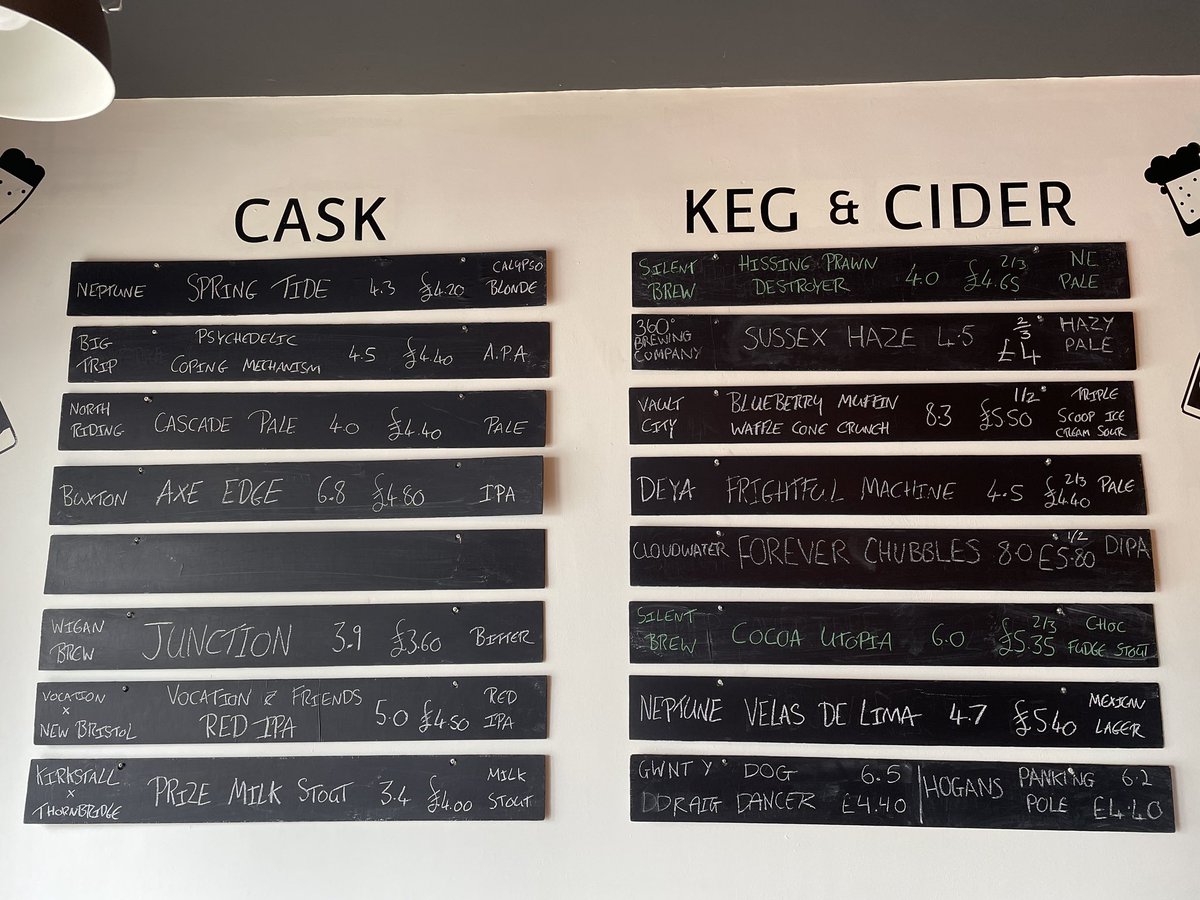 CASK
NEPTUNE SPRING TIDE 4.3 £4.20 CALYPSO BLONDE
BIG TRIP PSYCHEDELIC COPING MECHANISM 4.5 £4.40 A.P.A
NORTH RIDING CASCADE PALE 4.0 £4.40 PALE
BUXTON AXE EDGE 6.8 £4.80 IPA
WIGAN BREW JUNCTION 3.9 £3.60 BITTER
VOCATION x NEW BRISTOL VOCATION & FRIENDS RED IPA 5.0 £4.50 RED IPA
KIRKSTALL x THORNBRIDGE PRIZE MILK STOUT 3.4 £4.00 MILK STOUT
KEG & CIDER
SILENT BREW HISSING PRAWN DESTROYER 4.0 2/3 £4.65 NE PALE
360° BREWING COMPANY SUSSEX HAZE 4.5 2/3 £4 HAZY PALE
VAULT CITY BLUEBERRY MUFFIN WAFFLE CONE CRUNCH 8.3 1/2 £5.50 TRIPLE SCOOP ICE CREAM SOUR
DEYA FRIGHTFUL MACHINE 4.5 2/3 £4.40 PALE
CLOUDWATER FOREVER CHUBBLES 8.0 1/2 £5.80 DIPA
SILENT BREW COCOA UTOPIA 6.0 2/3 £5.35 CHOC FUDGE STOUT
NEPTUNE VELAS DE LIMA 4.7 £5.40 MEXICAN LAGER
GWNT Y DDRAIG DOG DANCER 6.5 £4.40 HOGANS PANKING POLE 6.2 £4.40